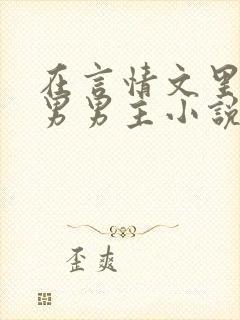 在言情文里
男男主小說
歪爽